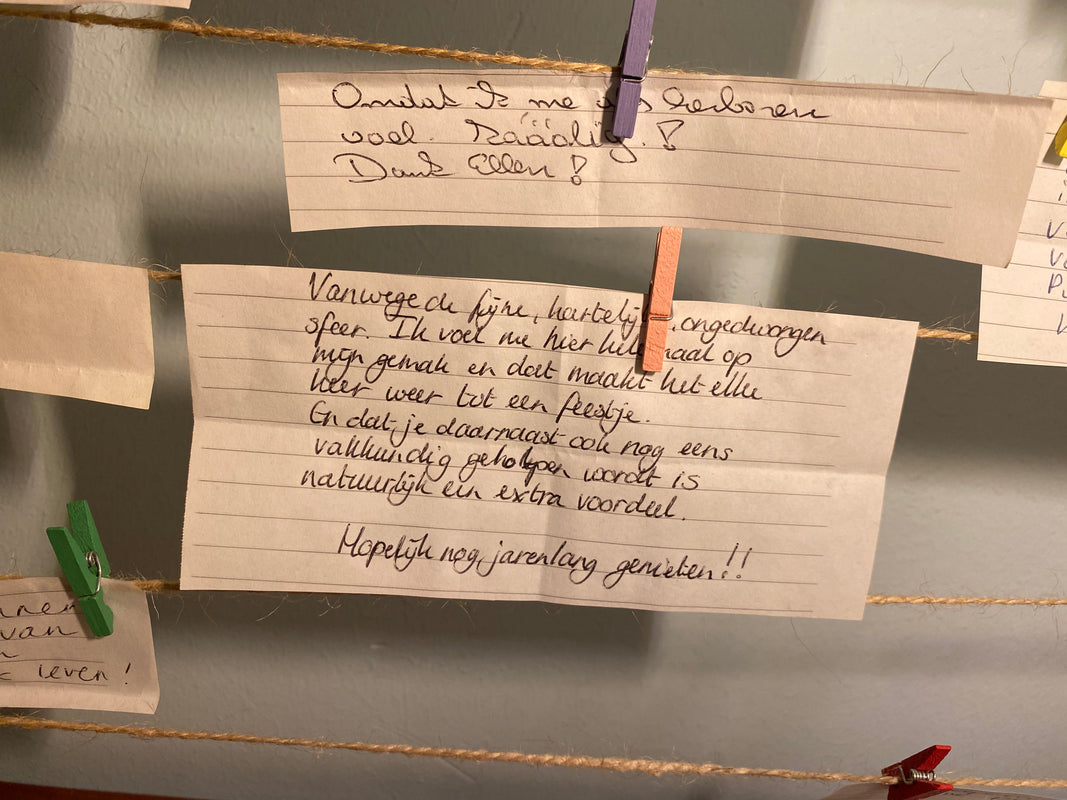 Omdat Ik me als herboren
voel.
Dank Ellen!
Vanwege de fijne, hartelijke, ongedwongen
sfeer. Ik voel me hier helemaal op
mijn gemak en dat maakt het elke
keer weer tot een feestje.
En dat je daarnaast ook nog eens
vakkundig geholpen wordt is
natuurlijk een extra voordeel.
Hopelijk nog jarenlang genieten!!
van
leven!